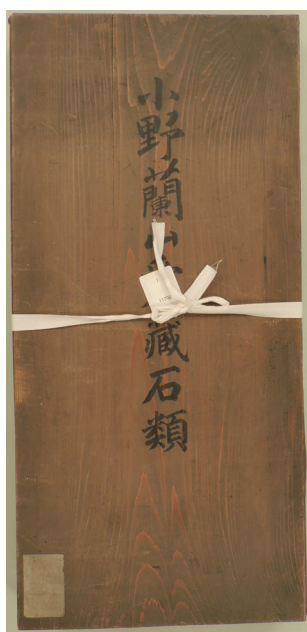 小野蘭山
藏石類